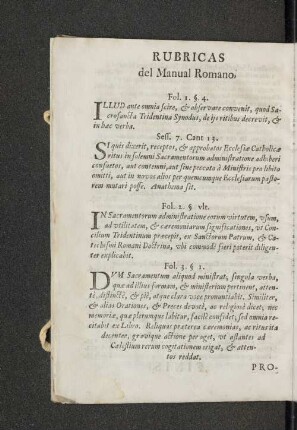 RUBRICAS
del Manual Romano.
Fol. 1. §. 4.
ILLUD ante omnia scire, & observare convenit, quod Sa-
crosancta Tridentina Synodus, de ijs ritibus decrevit, &
in hæc verba.
Sess. 7. Can 13.
SI quis dixerit, receptos, & approbatos Ecclesiæ Catholicæ
ritus in solemni Sacramentorum administratione adhiberi
consuetos, aut contemni, aut sine peccato à Ministris pro libito
omitti, aut in novos alios per quemcumque Ecclesiarum pasto-
rem mutari posse. Anathema sit.
Fol. 2. §. vlt.
IN Sacramentorum administratione eorum virtutem, vsum,
ad vtilitatem, & cæremoniarum significationes, vt Con-
cilium Tridentinum præcepit, ex Sanctorum Patrum, & Ca-
techismi Romani Doctrina, vbi commodè fieri poterit diligen-
ter explicabit.
Fol. 3. §. 1.
DVM Sacramentum aliquod ministrat, singula verba,
quæ ad illius formam, & ministerium pertinent, atten-
tè, distinctè, & piè, atque clara voce pronuntiabit. Similiter,
& alias Orationes, & Preces devotè, ac religiosè dicet; nec
memoriæ, quæ plerumque labitur, facilè confidet; sed omnia re-
citabit ex Libro. Reliquas præterea cæremonias, ac ritus ita
decenter, gravique actione peraget, vt astantes ad
Cælestium rerum cogitationem erigat, & atten-
tos reddat.
PRO-